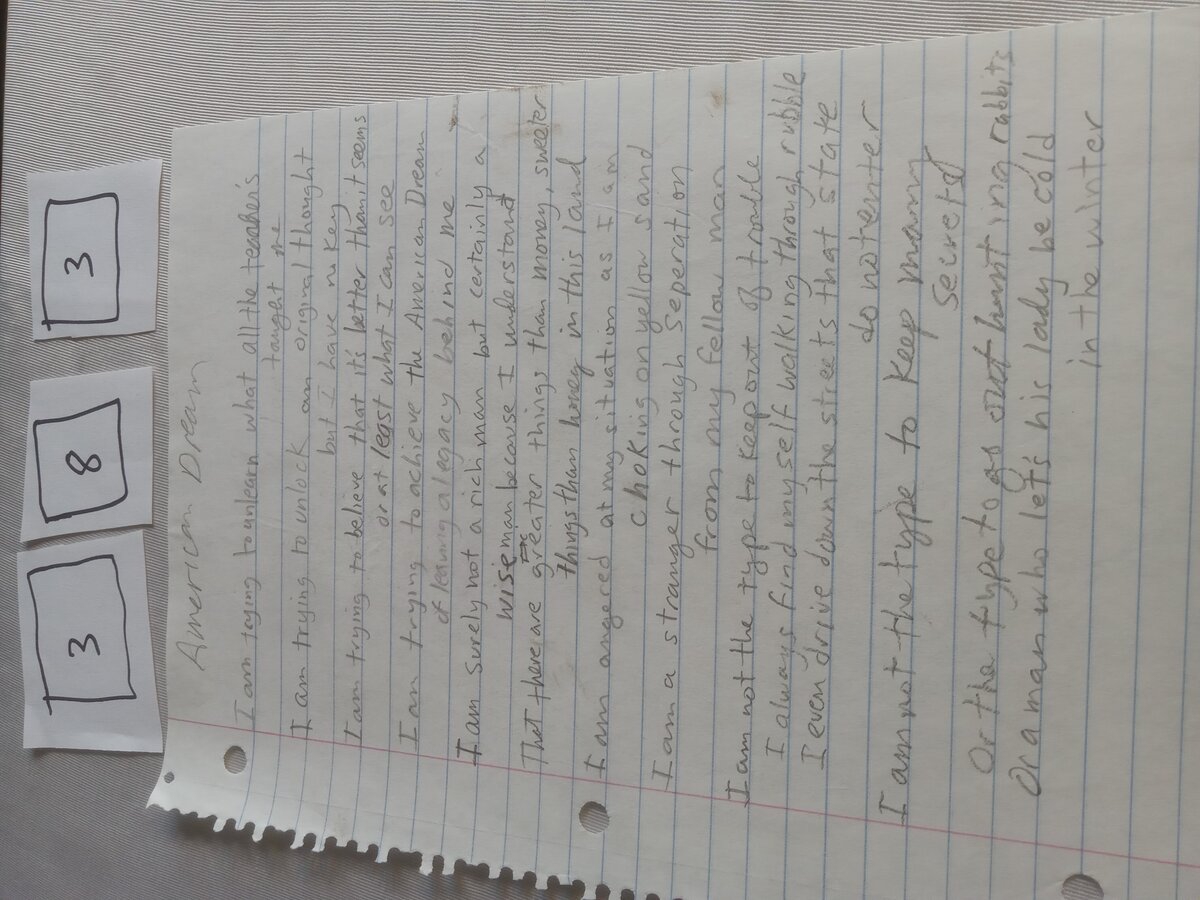 3 8 3
American Dream
I am trying to unlearn what all the teacher's
taught me
I am trying to unlock an original thought
but I have no key
I am trying to believe that it's better than it seems
or at least what I can see
I am trying to achieve the American Dream
of leaving a legacy behind me
I am surely not a rich man but certainly a
wise man because I understand
That there are greater things than money, sweeter
things than honey in this land
I am angered at my situation as I am
choking on yellow sand
I am a stranger through Seperation
from my fellow man
I am not the type to keep out of trouble
I always find myself walking through rubble
I even drive down the streets that state
do not enter
I am not the type to keep many
secrets
Or the type to go out hunting rabbits
Or a man who lets his lady be cold
in the winter